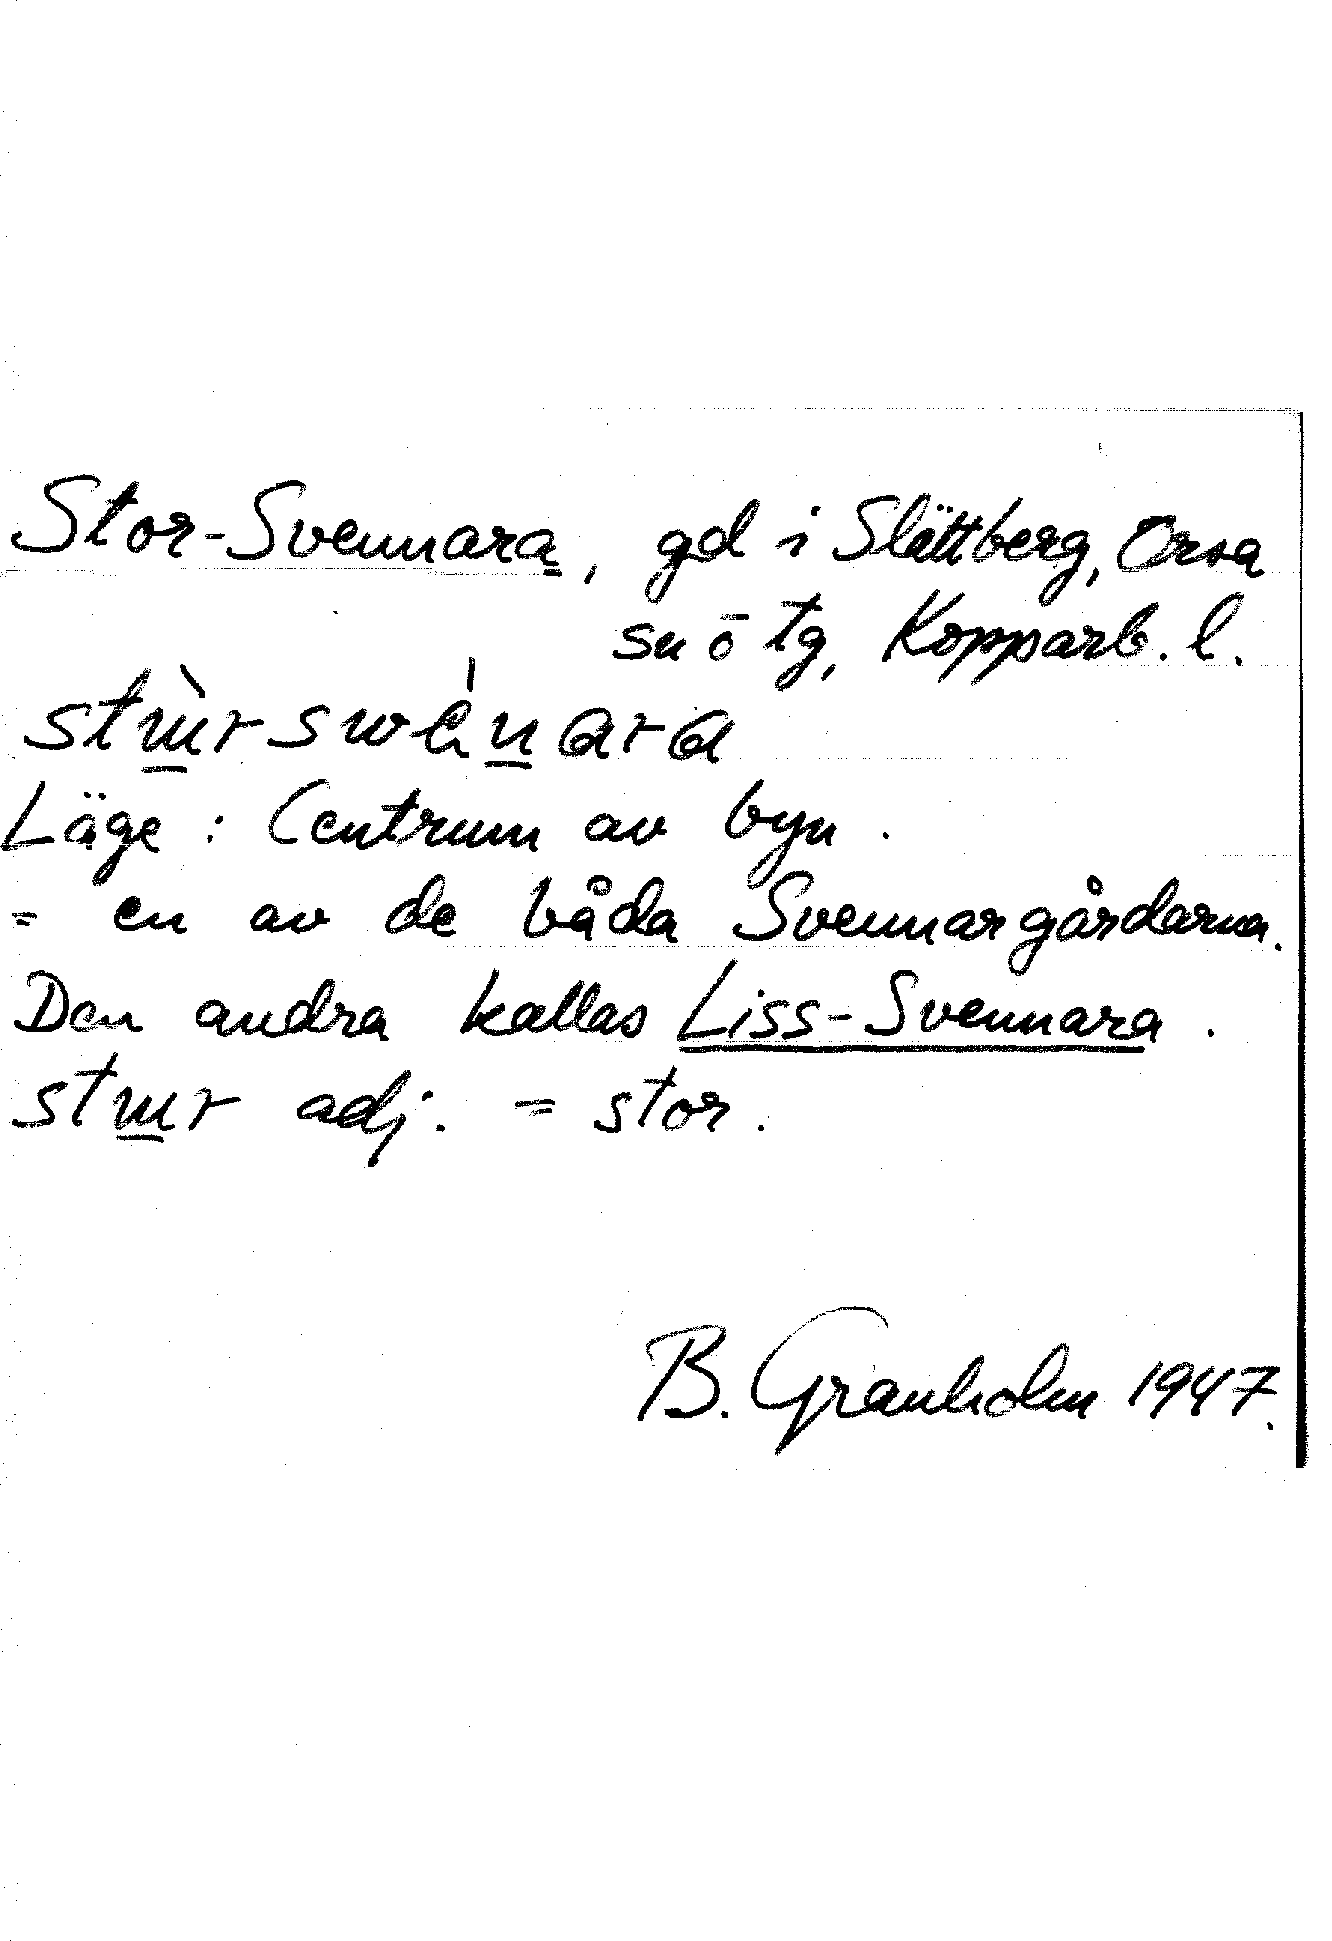 Stor-Svennara, gd i Slättberg, Orsa
sn o tg, Kopparb. l.
Läge : Centrum av byn .
= en av de båda Svennargårdarna.
Den andra kallas Liss-Svennara .
adj. = stor .
B. Granholm 1947.